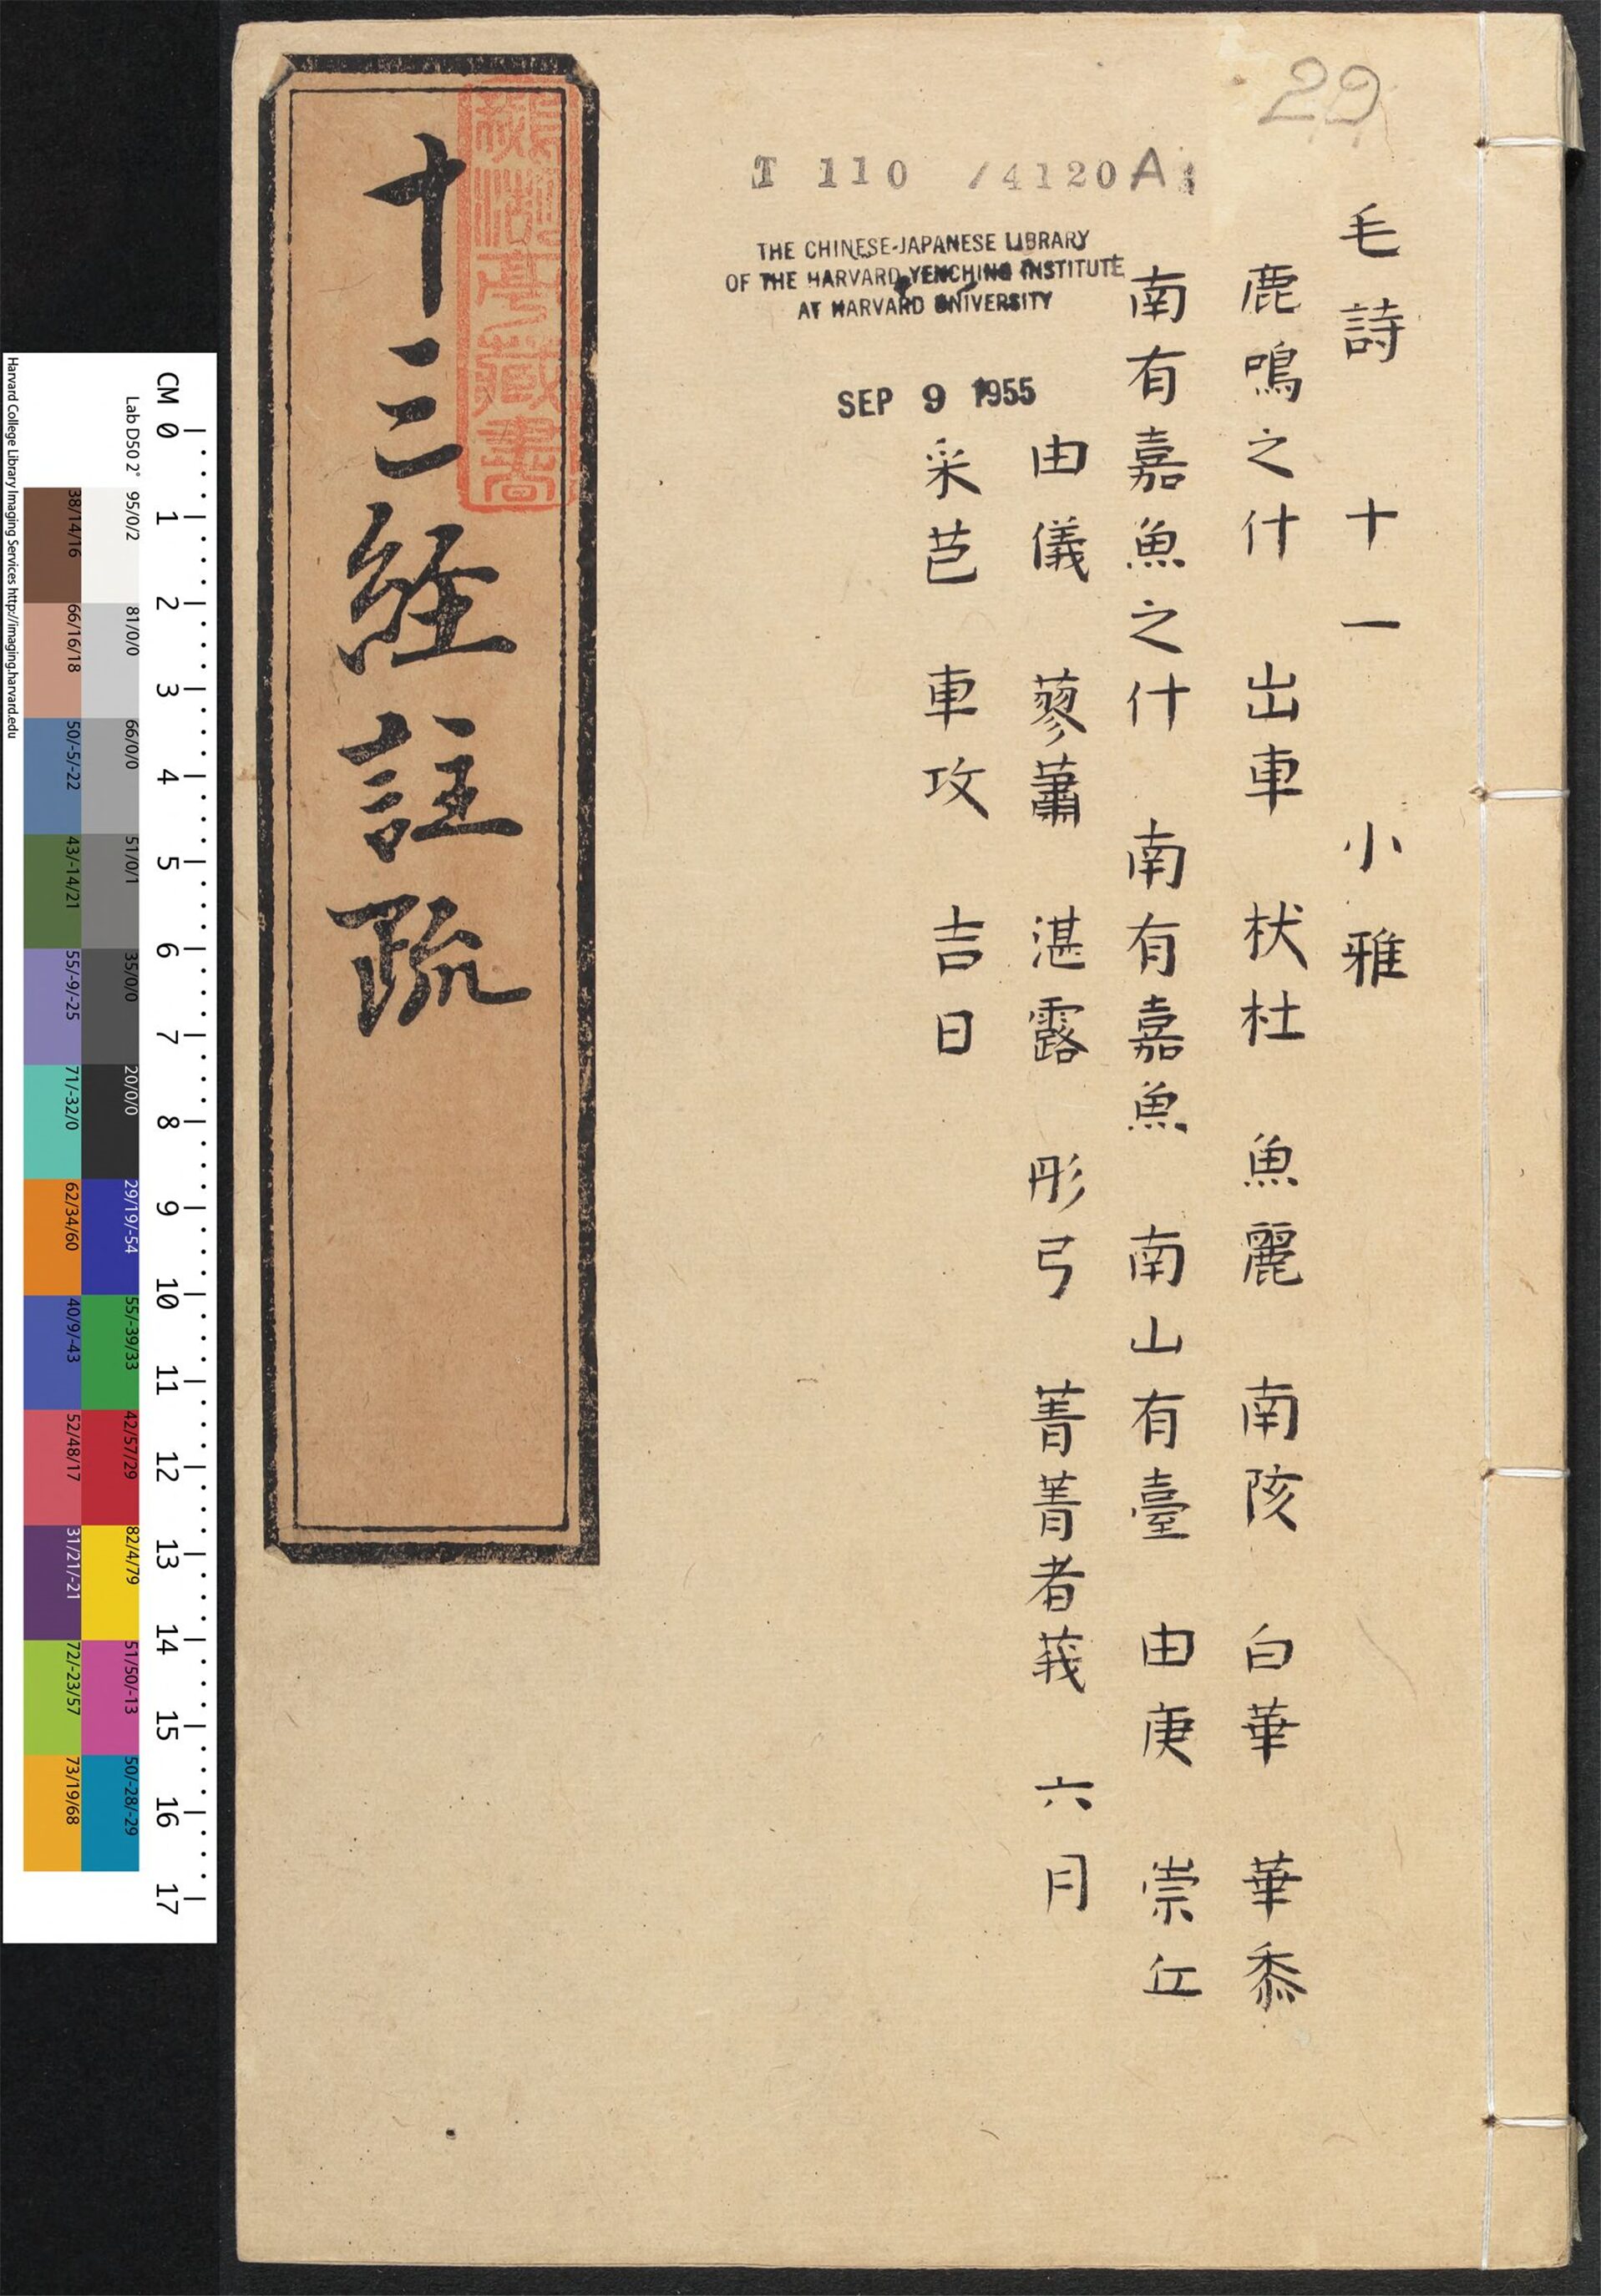 29
T 110 /4120A
THE CHINESE-JAPANESE LIBRARY
OF THE HARVARD-YENCHING INSTITUTE
AT HARVARD UNIVERSITY
SEP 9 1955
毛詩 十一 小雅
鹿鳴之什 出車 杕杜 魚麗 南陔 白華 華黍
南有嘉魚之什 南有嘉魚 南山有臺 由庚 崇丘
由儀 蓼蕭 湛露 彤弓 菁菁者莪 六月
采芑 車攻 吉日
十三經註疏
亭藏書
CM 0 1 2 3 4 5 6 7 8 9 10 11 12 13 14 15 16 17
Lab D50 2° 95/0/2 81/0/0 66/0/0 51/0/1 35/0/0 20/0/0 29/19/-54 55/-39/33 42/57/29 82/4/79 51/50/-13 50/-28/-29
38/14/16 66/16/18 50/-5/-22 43/-14/21 55/-9/-25 71/-32/0 62/34/60 40/9/-43 52/48/17 31/21/-21 72/-23/57 73/19/68
Harvard College Library Imaging Services http://imaging.harvard.edu